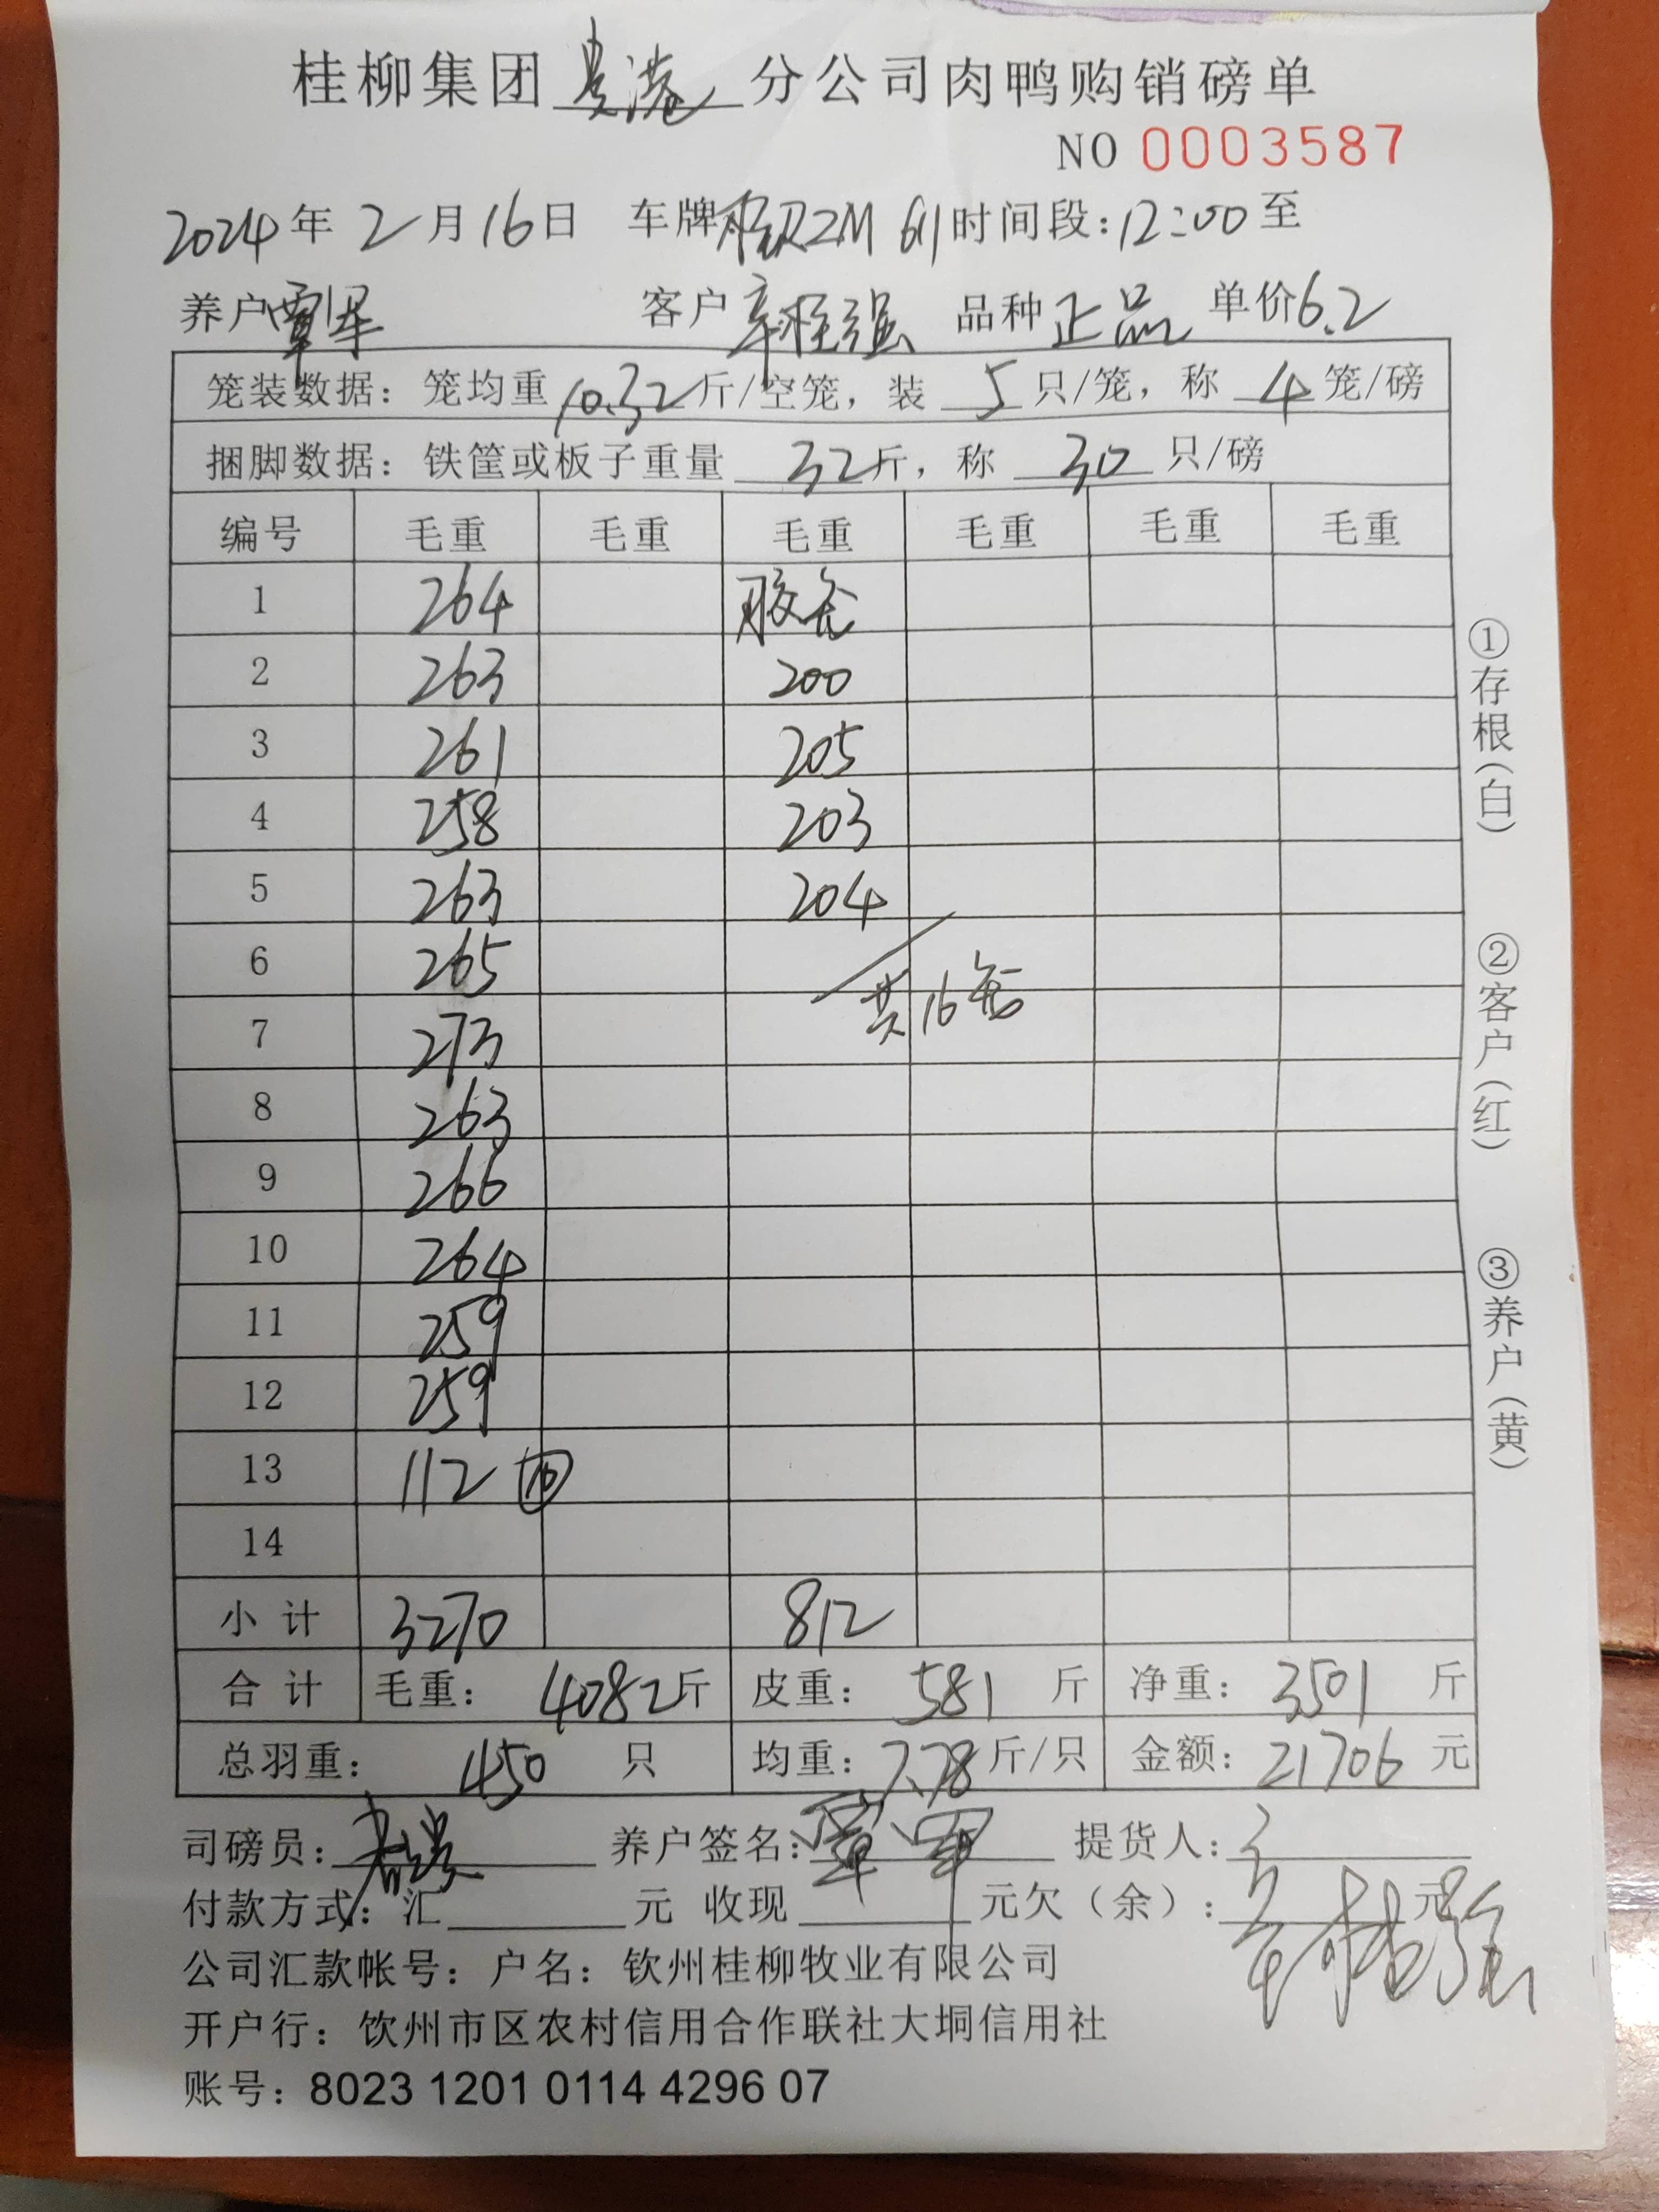 桂柳集团贵港分公司肉鸭购销磅单
NO 0003587
2024年2月16日 车牌 时间段:12:00至
养户覃军 客户辛桂强 品种正品 单价6.2
笼装数据：笼均重10.32斤/空笼，装5只/笼，称4笼/磅
捆脚数据：铁筐或板子重量32斤，称30只/磅
编号 毛重 毛重 毛重 毛重 毛重 毛重
1 264 胶仓
2 263 200
3 261 205
4 258 203
5 263 204
6 265
7 273 共16仓
8 263
9 266
10 264
11 259
12 259
13 112 ⑩
14
小计 3270 812
合计 毛重：4082斤 皮重：581斤 净重：3501斤
总羽重：450只 均重：7.78斤/只 金额：21706元
司磅员： 养户签名：覃军 提货人：
辛桂强
付款方式：汇 元 收现 元欠（余）： 元
公司汇款帐号：户名：钦州桂柳牧业有限公司
开户行：钦州市区农村信用合作联社大垌信用社
账号：8023 1201 0114 4296 07
①存根（白）
②客户（红）
③养户（黄）